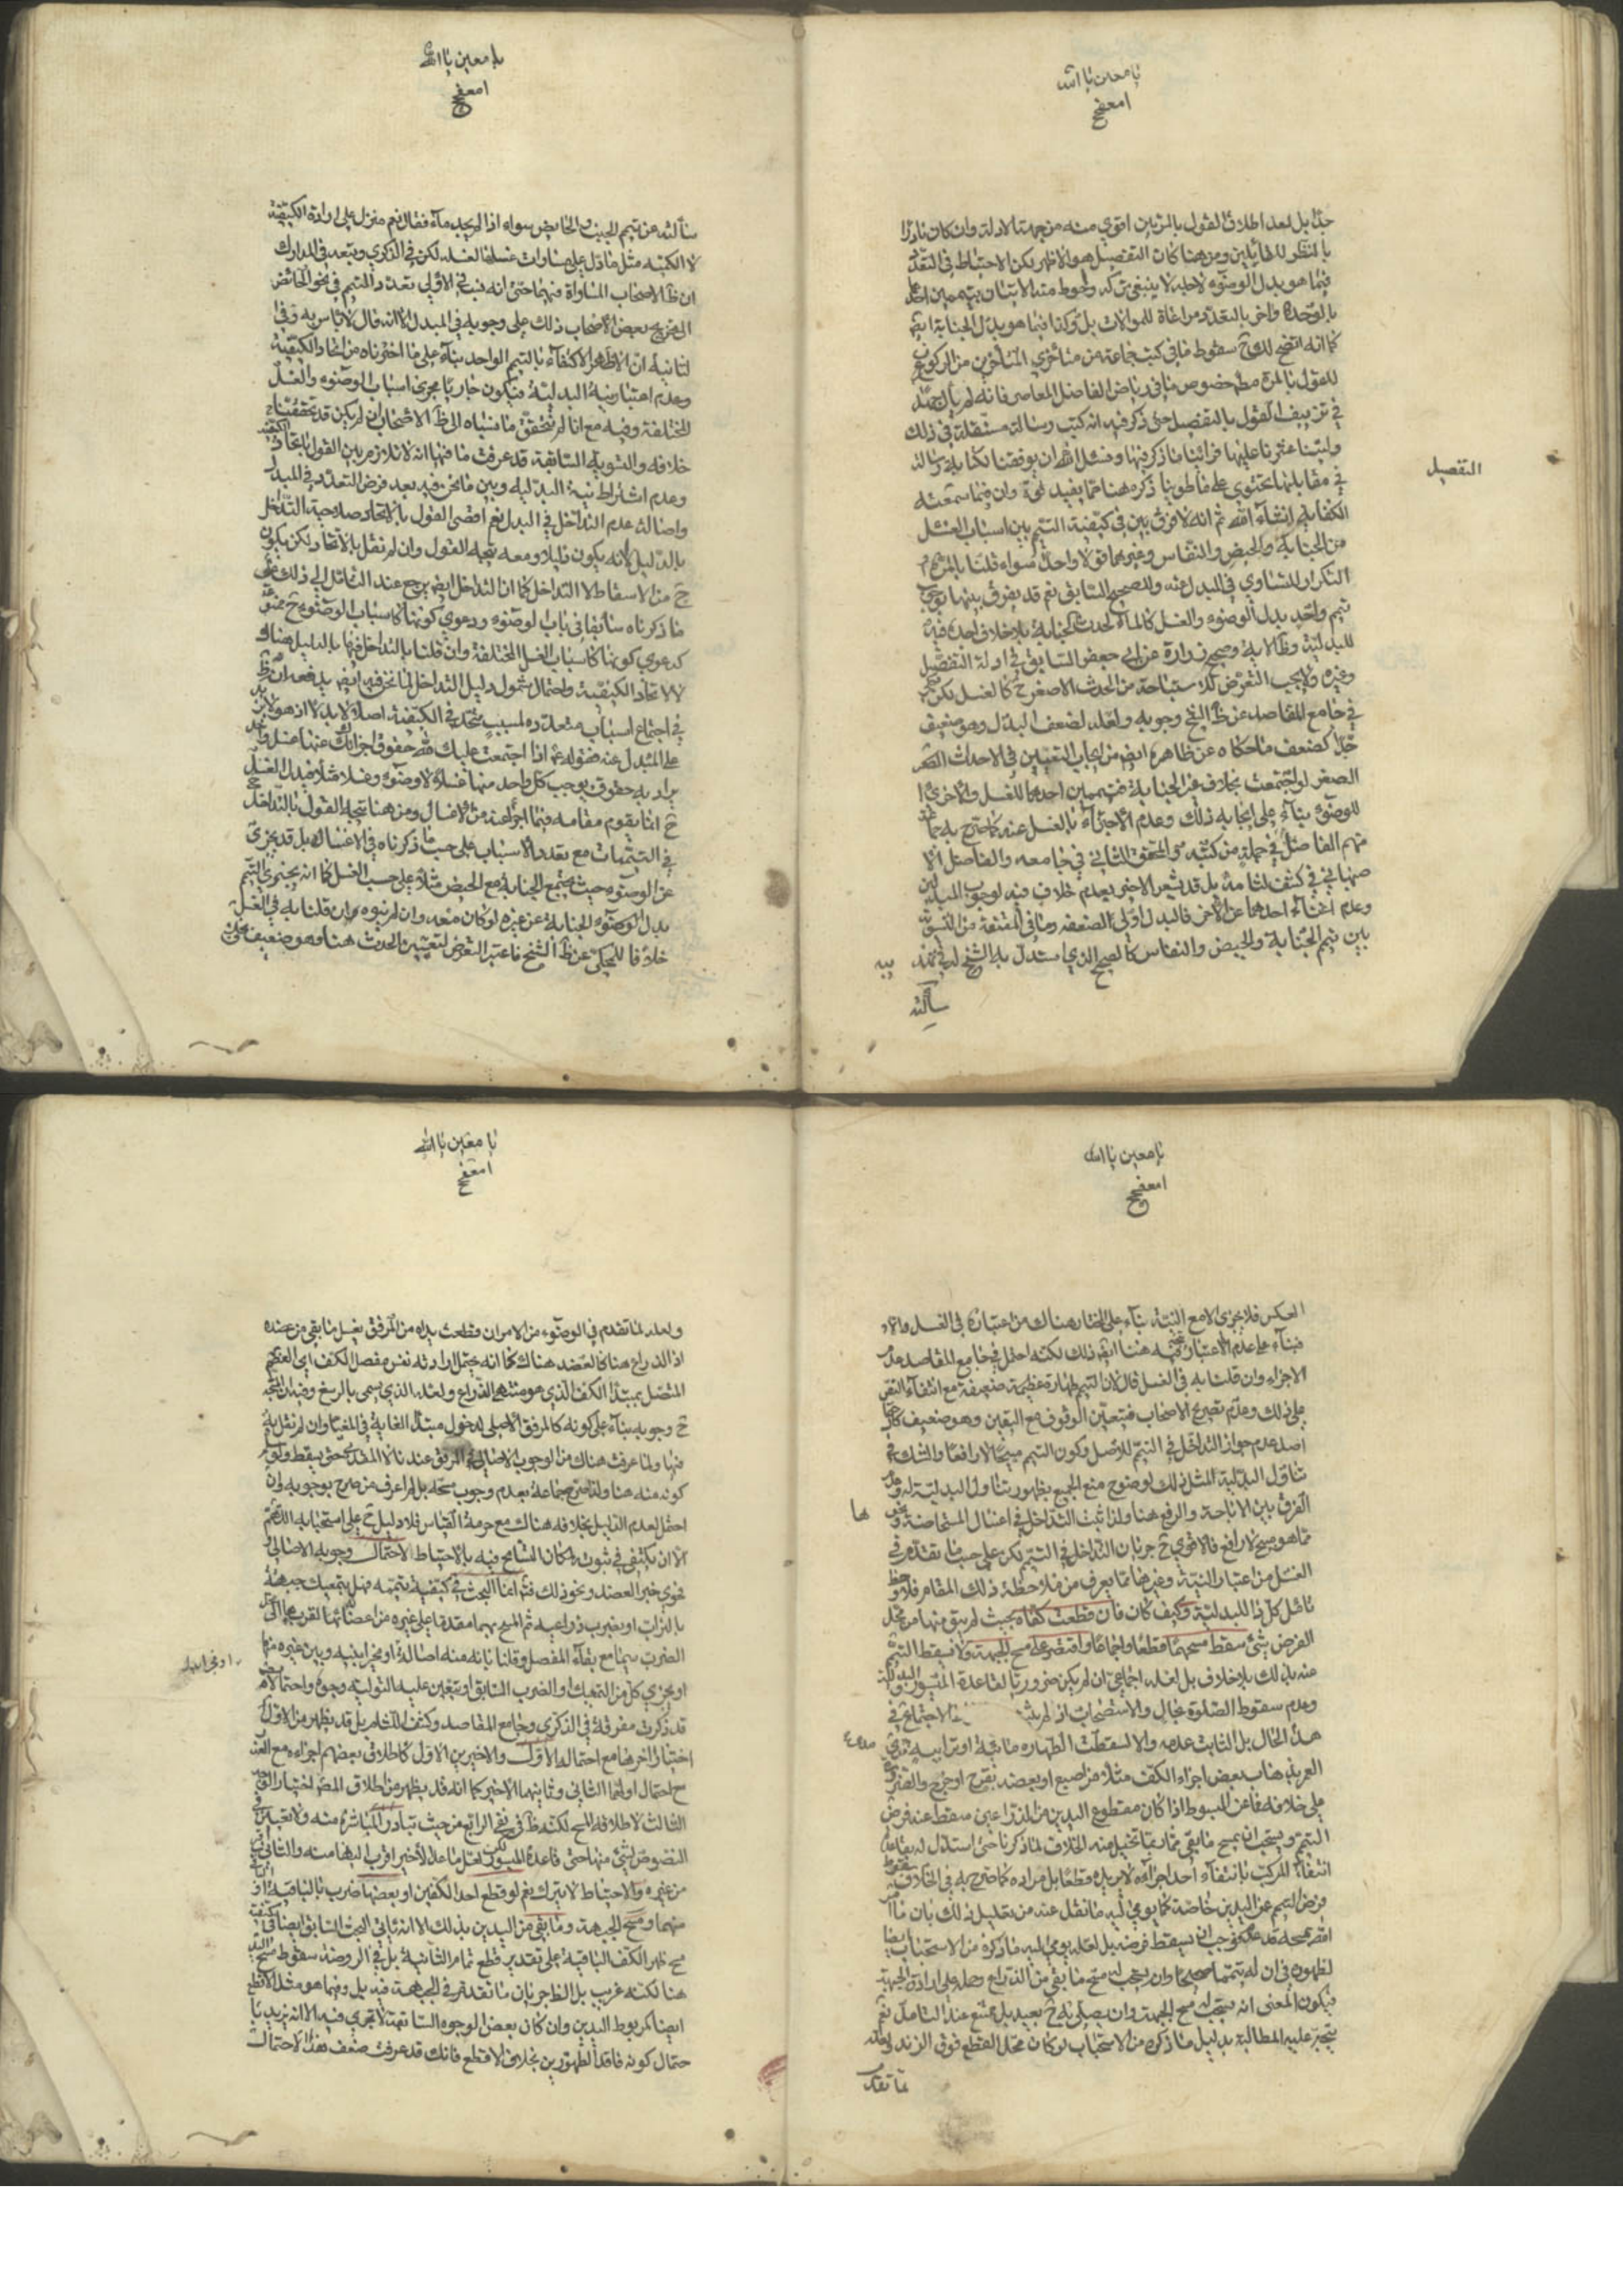 يا معين يا الله
جدّا بل لعد اطلاق القول بالمرتين اقوي منه من جهة الادلة وان كان نادرًا
بالنظر للقائلين ومن هنا كان التفصيل هو الاظهر لكن الاحتياط في التعدد
فيما هو بدل الوضوء لاجله لا ينبغي تركه واحوط منه الاتيان بتيممين احدهما
بالوحدة والاخر بالتعدد مراعاة للموالات بل وكذا فيما هو بدل الجنابة ايضا
كما انه اتضح لك ح سقوط ما في كتب جماعة من متأخري المتأخرين من الركون
للقول بالمرة مطلقا خصوص ما في رياض الفاضل المعاصر فانه لم يأل جهدًا
في تزييف القول بالتفصيل حتى ذكر فيه انه كتب رسالة مستقلة في ذلك
وليتنا عثرنا عليها فرأينا ما ذكر فيها ونسئل الله ان يوفقنا لكتابة رسالة
في مقابلتها تحتوي على ما طوينا ذكره هنا مما يفيد قوة وان فيما سمعته
التفصيل
الكفاية انشاء الله ثم انه لا فرق بين في كيفية التيمم بين اسباب الغسل
من الجنابة والحيض والنفاس وغيرهما قولا واحدا سواء قلنا بالمرة او
التكرار للتساوي في المبدل عنه وللصحيح السابق نعم قد يفرق بينها بوجوب
تيمم واحد بدل الوضوء والغسل كالماء لحدث الجنابة بلا خلاف اجده فيه
للبدلية وظ الاية وصحيح زرارة عن ابي جعفر السابق في ادلة التفصيل
وغيره ولا يجب التعرض لاستباحة من الحدث الاصغر ح كالغسل لكن
في جامع المقاصد عن ظ الشيخ وجوبه ولعله لضعف البدل وهو ضعيف
جدّا كضعف ما حكاه عن ظاهره ايضا من ايجاب التعيين في الاحداث
الصغر لو اجتمعت بخلاف غير الجنابة فتيممين احدهما للغسل والاخرى
للوضوء بناء على ايجابه ذلك وعدم الاجتزاء بالغسل عنه كما صرح به جماعة
منهم الفاضل في جملة من كتبه والمحقق الثاني في جامعه والفاضل الا
صبهاني في كشف لثامه بل قد يشعر الاخير بعدم خلاف فيه لوجوب المبدلين
وعدم اغناء احدهما عن الاخر فالبدل اولى لضعفه وما في المقنعة من التسوية
بين تيمم الجنابة والحيض والنفاس كالصحيح الذي استدل به الشيخ له في
سألته
يا معين يا الله
سألته عن تيمم الجنب والحايض سواء اذا لم يجد ماء فقال نعم منزل على ارادة الكيفية
لا الكمية مثل ما دل على مساوات غسلها لغسله لكن في الذكرى وتبعه في المدارك
ان ظ الاصحاب المساواة فيهما حتى انه نسب في الاولى تعدد التيمم في نحو الحائض
الى تخريج بعض الاصحاب ذلك على وجوبه في المبدل الا انه قال لا باس به وفي
الثانية ان الاظهر الاكتفاء بالتيمم الواحد بناء على ما اخترناه من اتحاد الكيفية
وعدم اعتبار نية البدلية فيكون جاريا مجرى اسباب الوضوء والغسل
المختلفة وفيه مع انا لم نتحقق ما نسباه الى ظ الاصحاب ان لم يكن قد تحققنا
خلافه والتسوية السابقة قد عرفت ما فيها انه لا تلازم بين القول باتحاد الكيفية
وعدم اشتراط نية البدلية وبين ما نحن فيه بعد فرض التعدد في المبدل
واصالة عدم التداخل في البدل نعم اقصى القول بالاتحاد صلاحية التداخل
بالدليل لانه يكون قابلا ومعه يتجه القول وان لم نقل بالاتحاد لكن يكون
ح من الاسقاط لا التداخل كما ان التداخل ايضا يرجع عند القائل الى ذلك على
ما ذكرناه سابقا في باب الوضوء ودعوى كونها كاسباب الوضوء ح ممنوعة
كدعوى كونها كاسباب الغسل المختلفة وان قلنا بالتداخل فيها بالدليل هناك
لا لاتحاد الكيفية واحتمال شمول دليل التداخل لما نحن فيه ايضا يدفعه ان ظ
في اجتماع اسباب متعددة لمسبب متحد في الكيفية اصلا لا بدلا اذ هو
على المبدل عنه فقوله ع اذا اجتمعت عليك لله حقوق اجزأك عنها غسل واحد
يراد به حقوق يوجب كل واحد منها غسلا لا وضوء وغسلا مثلا فبدل الغسل
ح انما يقوم مقامه فيما اجزأ عنه من الاغسال ومن هنا يتجه القول بالتداخل
في التيممات مع تعدد الاسباب على حسب ما ذكرناه في الاغسال بل قد يجزي
عن الوضوء حيث يجتمع الجنابة مع الحيض مثلا على حسب الغسل كما انه يجتزي بالتيمم
بدل الوضوء الجنابة عن غيره لو كان معه وان لم ينوه وان قلنا به في الغسل
خلافا للمحكي عن ظ الشيخ فاعتبر التعرض لتعيين الحدث هنا وهو ضعيف
يا معين يا الله
العكس فلا يجزي الا مع النية بناء على المختار هناك من اعتباره في الغسل والا
فبناء على عدم الاعتبار يتجه هنا ايضا ذلك لكنه احتمل في جامع المقاصد عدم
الاجزاء وان قلنا به في الغسل قال لان التيمم طهارة عظيمة ضعيفة مع انتفاء النص
على ذلك وعدم تصريح الاصحاب فيتعين الوقوف مع اليقين وهو ضعيف
اصله عدم جواز التداخل في التيمم للاصل وكون التيمم مبيحا لا رافعا والشك في
تناول البدلية لمثل ذلك لوضوح منع الجميع بظهور تناول البدلية له وعدم
الفرق بين الاباحة والرفع هنا ولذا ثبت التداخل في اغسال المستحاضة ونحوها
مما هو مبيح لا رافع فالاقوى ح جريان التداخل في التيمم لكن على حسب ما تقدم في
الغسل من اعتبار النية وغيرها مما يعرف من ملاحظة ذلك المقام فلاحظ
تأمل كل ذا للبدلية وكيف كان فان قطعت كفاه بحيث لم يبق منها من محل
الفرض شئ سقط مسحهما قطعا واجماعا واقتصر على مسح الجبهة ولا يسقط التيمم
عنه بذلك بلا خلاف بل لعله اجماعي ان لم يكن ضروريا لقاعدة الميسور والبدلية
وعدم سقوط الصلوة بحال والاستصحاب
هذا الحال بل الثابت عدمه والا لسقطت الطهارة مائية او ترابية
العريبه ذهاب بعض اجزاء الكف مثلا من اصبع او بعضه بقرح او جرح
على خلافه فما عن المبسوط اذا كان مقطوع اليدين من الذراعين سقط عنه فرض
التيمم ويستحب ان يمسح ما بقي مما ربما تخيل منه الخلاف لما ذكرنا حتى استدل له بقاعدة
انتفاء المركب بانتفاء احد اجزاءه لا يريده قطعا بل مراده كما صرح به في الخلاف سقوط
فرض التيمم عن اليدين خاصة كما يومي اليه ما نقل عنه من تعليل ذلك بان ما امر
الله بمسحه قد عدم فوجب ان يسقط فرضه بل لعله يومي اليه ما ذكره من الاستحباب ايضا
لظهوره في ان له تيمما صحيحا وان يستحب له مسح ما بقي من الذراع وحمله على ارادة الجبهة
فيكون المعنى انه يستحب له مسح الجبهة وان يصلي به ح بعيد بل ممتنع عند التأمل نعم
يتجه عليه المطالبة بدليل ما ذكره من الاستحباب لو كان محل القطع فوق الزند ولعله
لما تقدم
يا معين يا الله
ولعله لما تقدم في الوضوء من الامر لمن قطعت يداه من المرفق بغسل ما بقي من عضده
اذ الذراع هنا كالعضد هناك كما انه يحتمل ارادته نفس مفصل الكف اي العظم
المتصل بمبتدا الكف الذي هو منتهى الذراع ولعله الذي يسمى بالرسغ وفيه ان المتجه
ح وجوبه بناء على كونه كالمرفق الاصلي لدخول مبتدأ الغاية في المغيا وان لم نقل به
فيها ولما عرفت هناك من الوجوب الاصالي في المرفق عندنا لا المقدمي حتى يسقط ولو
كونه منه هنا ولذا صرح جماعة بعدم وجوب مسحه بل لم اعرف من صرح بوجوبه وان
احتمل لعدم الدليل بخلافه هناك مع حرمة القياس فلا دليل ح على استحبابه اللهم
الا ان يكتفى في ثبوته لمكان التسامح فيه بالاحتياط لاحتمال وجوبه الاصالي او
فحوى خبر العضد ونحو ذلك فتم انما البحث في كيفية تيممه فهل يتمعك جبهته
بالتراب او يضرب ذراعيه ثم المسح بهما مقدما على غيره من اعضائه القرب
الضرب سيما مع بقاء المفصل وقلنا بانه منه اصالة او مخير بينه وبين غيره منها
او يجزي كل من التمعك او الضرب السابق او يتعين عليه التولية وجوه واحتمالات
قد ذكرت مفرقة في الذكرى وجامع المقاصد وكشف اللثام بل قد يظهر من الاول
اختيار اخرها مع احتماله الاول والاخيرين الاول كاطلاق بعضهم اجزاءه مع
احتمال اولهما الثاني وثانيهما الاخير كما انه قد يظهر من اطلاق المص اختيار
الثالث لاطلاقه المسح لكنه ظ في نفي الرابع من حيث تبادر المباشرة منه ولا تعيين
النصوص لشئ منها حتى قاعدة الميسور لكن لعل ما عدا الاخير اقرب اليها منه والثاني
من غيره والاحتياط لا يترك نعم لو قطع احد الكفين او بعضها ضرب بالباقية او
منهما ومسح الجبهة وما بقي من اليدين بذلك الا انه يأتي البحث السابق ايضا في كيفية
مسح ظهر الكف الباقية على تقدير قطع تمام الثانية بل في الروضة سقوط مسح اليد
هنا لكنه غريب بل الظ جريان ما تقدم في الجبهة فيه بل وفيما هو مثل الاقطع
ايضا كمربوط اليدين وان كان بعض الوجوه السابقة لا تجري فيه الا انه يزيد با
حتمال كونه فاقد الطهورين بخلاف الاقطع فانك قد عرفت ضعف هذا الاحتمال